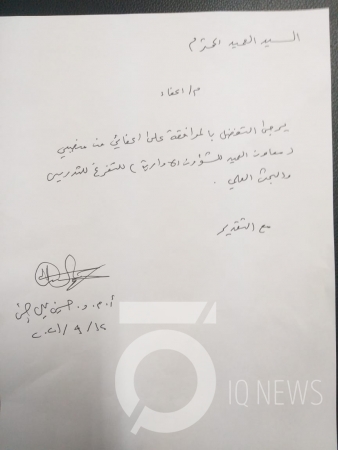 السيد العميد المحترم
م/ اعفاء
يرجى التفضل بالموافقة على اعفائي من منصبي
( معاون العميد للشؤون الادارية ) للتفرغ للتدريس
والبحث العلمي .
مع التقدير
أ.م.د. حسين علي
٢٠٢١/٩/١٢
IQ NEWS